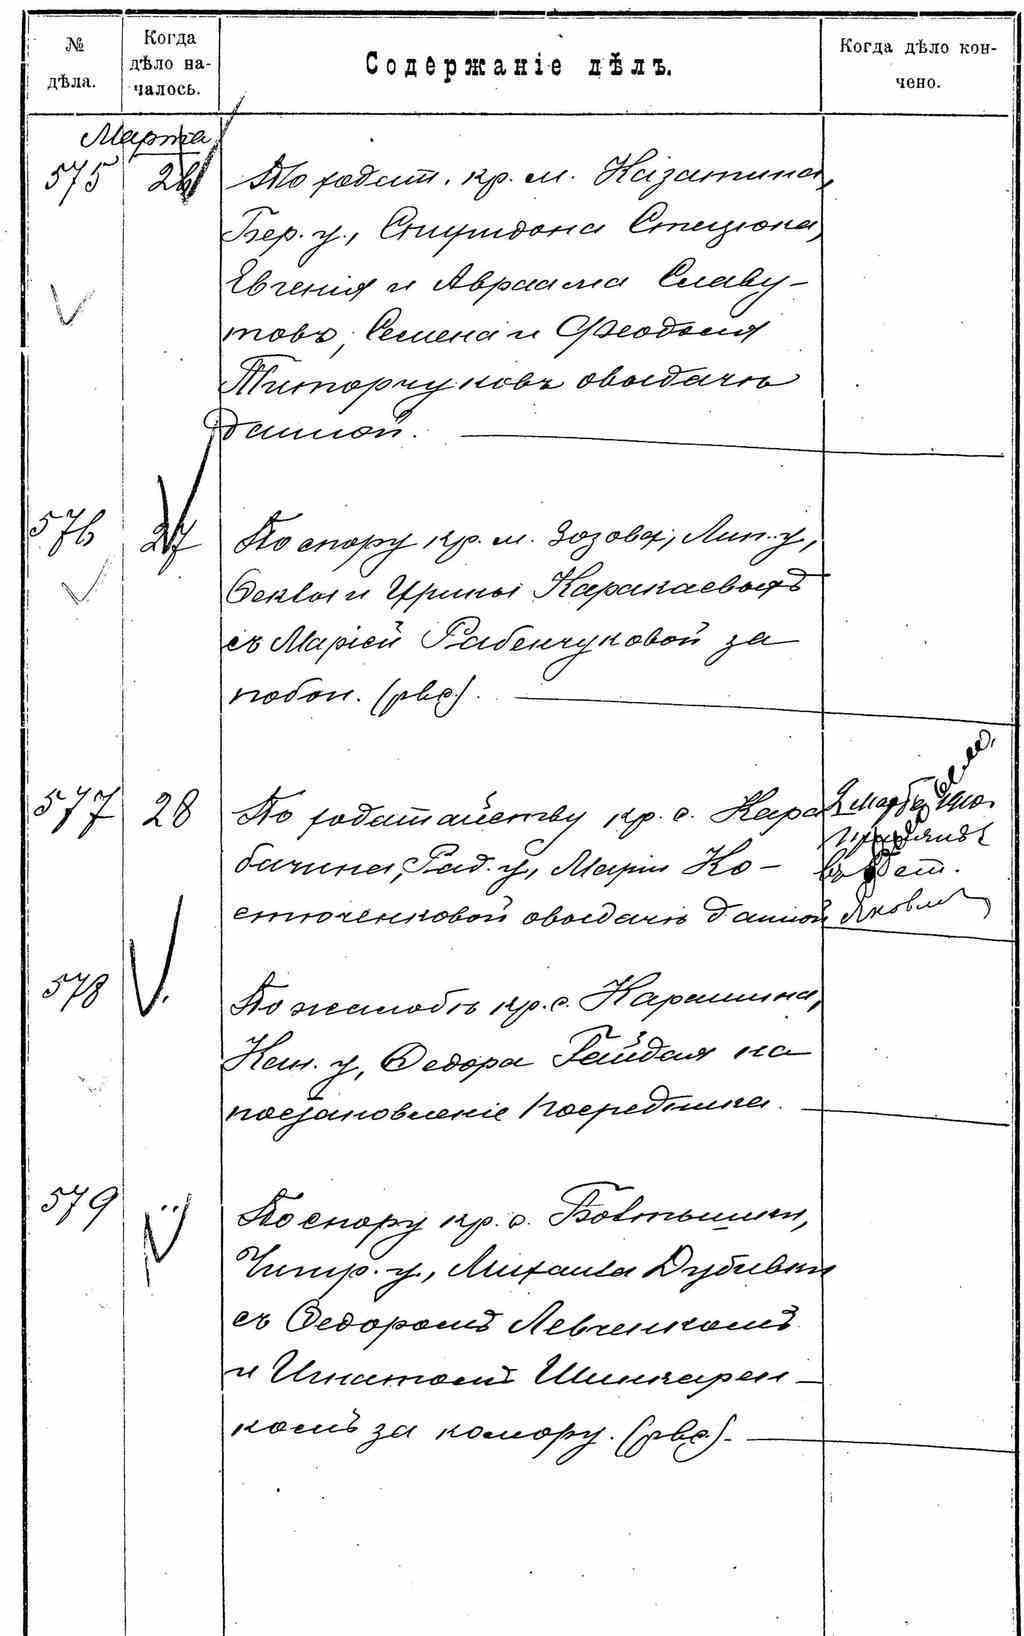 № дѣла.
Когда дѣло началось.
Содержаніе дѣлъ.
Когда дѣло кончено.
Марта
575 26 По ходат. кр. м. Казатина,
Бер. у., Спиридона Стецюка,
Евгенія и Авраама Славу-
товъ, Семена и Феодосія
Титорчуковъ о выдачѣ
данной.
576 27 По спору кр. м. Зозова, Лип. у.,
Феклы и Ирины Каракаевыхъ
съ Маріей Рабенчуковой за
побои. (рвс).
577 28 По ходатайству кр. с. Кара
бачина, Рад. у., Маріи Ко-
стюченковой о выдачѣ данной
1910.
въ
Яковле
578 По жалобѣ кр. с. Карашина,
Кан. у., Федора Гайдая на
постановленіе посредника.
579 По спору кр. с. Бовтышки,
Чигир. у., Михаила Дубивки
съ Федоромъ Левченкомъ
и Игнатомъ Шинкарен-
комъ за комору. (рвс).